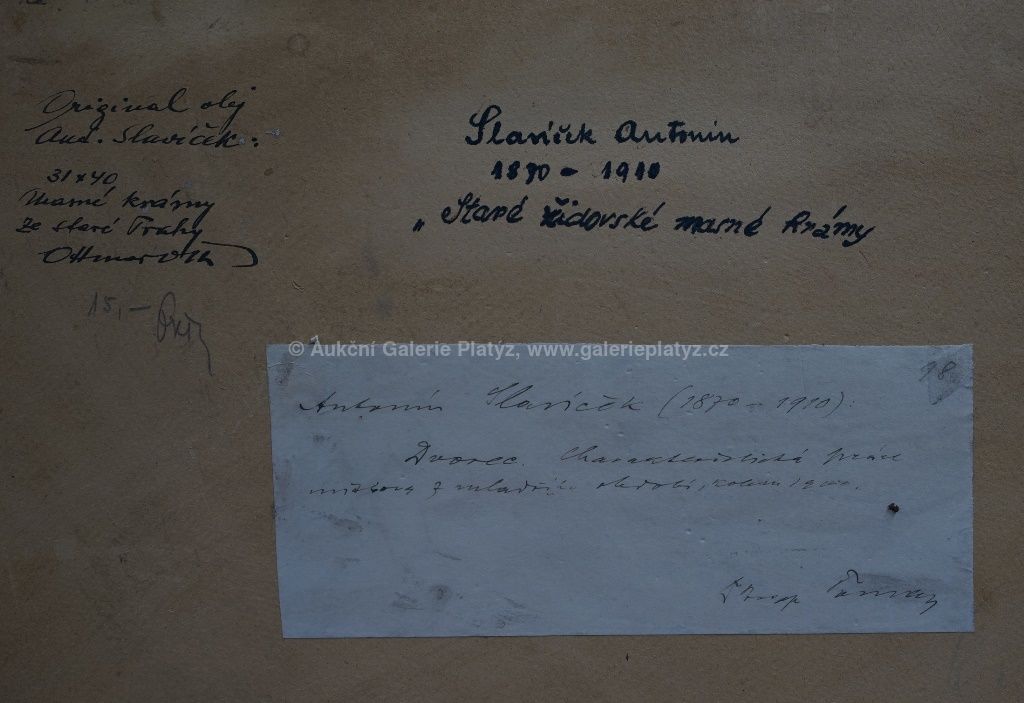 Original olej
Ant. Slavíček:
31 x 40
Masné krámy
ze staré Prahy
15,-
Slavíček Antonín
1870 - 1910
„Staré židovské masné krámy
© Aukční Galerie Platýz, www.galerieplatyz.cz
98
Antonín Slavíček (1870 - 1910).
Dvorec. Charakteristická práce
mistrova z mladšího období, kolem 1900.